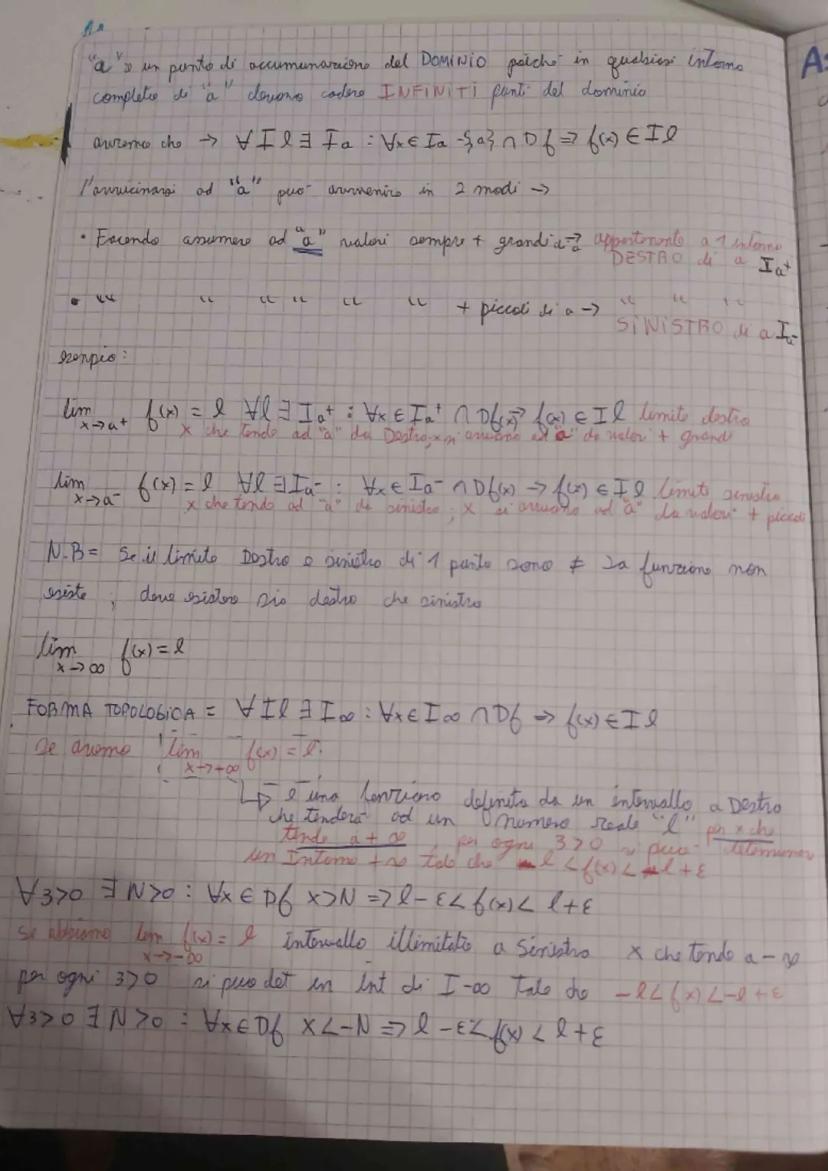 "a" è un punto di accumunazione del DOMINIO poiché in qualsiasi intorno
completo di "a" devono cadere INFINITI punti del dominio
avremo che → ∀ I l ∃ Ia : ∀x ∈ Ia -{a} ∩ Df ⇒ f(x) ∈ I l
l'avvicinarsi ad "a" può avvenire in 2 modi →
• Facendo assumere ad "a" valori sempre + grandi di a → appartenente a 1 intorno
DESTRO di a Ia⁺
• " " " " " " + piccoli di a → " " "
SINISTRO di a Ia⁻
esempio:
lim x→a⁺ f(x) = l ∀l ∃ Ia⁺ : ∀x ∈ Ia⁺ ∩ Df(x) → f(x) ∈ I l limite destro
x che tende ad "a" da Destro, x si avvicina ad "a" da valori + grandi
lim x→a⁻ f(x) = l ∀l ∃ Ia⁻ : ∀x ∈ Ia⁻ ∩ Df(x) → f(x) ∈ I l limite sinistro
x che tende ad "a" da sinistra ; x si avvicina ad "a" da valori + piccoli
N.B = Se il limite Destro e sinistro di 1 punto sono ≠ la funzione non
esiste ; deve esistere sia destro che sinistro
lim x→∞ f(x) = l
FORMA TOPOLOGICA = ∀ I l ∃ I∞ : ∀x ∈ I∞ ∩ Df ⇒ f(x) ∈ I l
Se avremo lim x→+∞ f(x) = l
↳ è una funzione definita da un intervallo a Destro
che tenderà ad un numero reale "l" per x che
tende a + ∞, per ogni 3>0 si può determinare
un Intorno +∞ tale che l < f(x) < l + ε
∀3>0 ∃ N>0 : ∀x ∈ Df x>N => l - ε < f(x) < l + ε
se abbiamo lim x→-∞ f(x) = l intervallo illimitato a sinistra x che tende a - ∞
per ogni 3>0 si può det un int di I-∞ Tale che - l < f(x) < - l + ε
∀3>0 ∃ N>0 : ∀x ∈ Df x<-N => l - ε < f(x) < l + ε